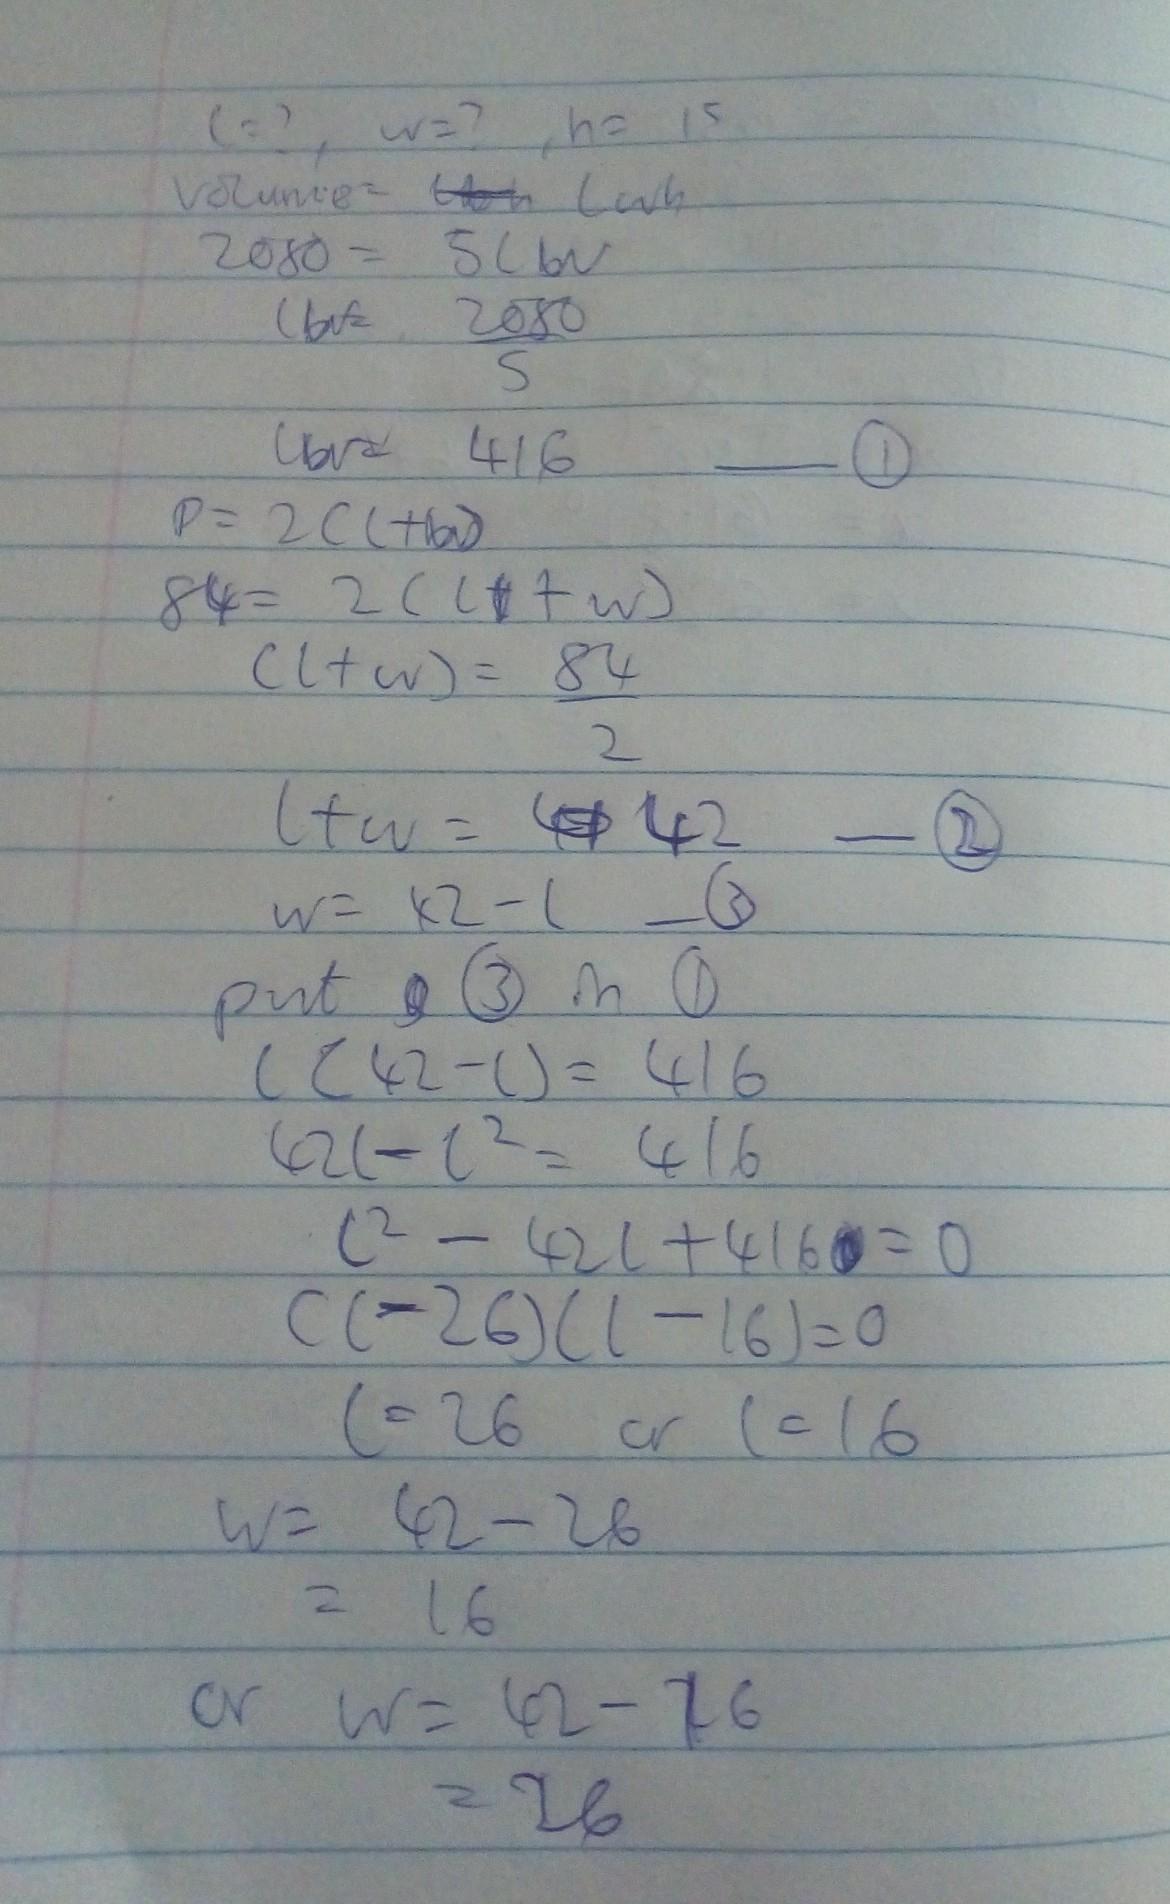 l=?, w=?, h= 15
Volume= lwh
2080= 5lw
lw= 2080
5
lw= 416 —— ①
P= 2(l+w)
84= 2(l+w)
(l+w)= 84
2
l+w= 42 — ②
w= 42-l — ③
put ③ in ①
l(42-l)= 416
42l-l²= 416
l² - 42l+416=0
(l-26)(l-16)=0
l=26 or l=16
w= 42-26
= 16
or w= 42-16
= 26